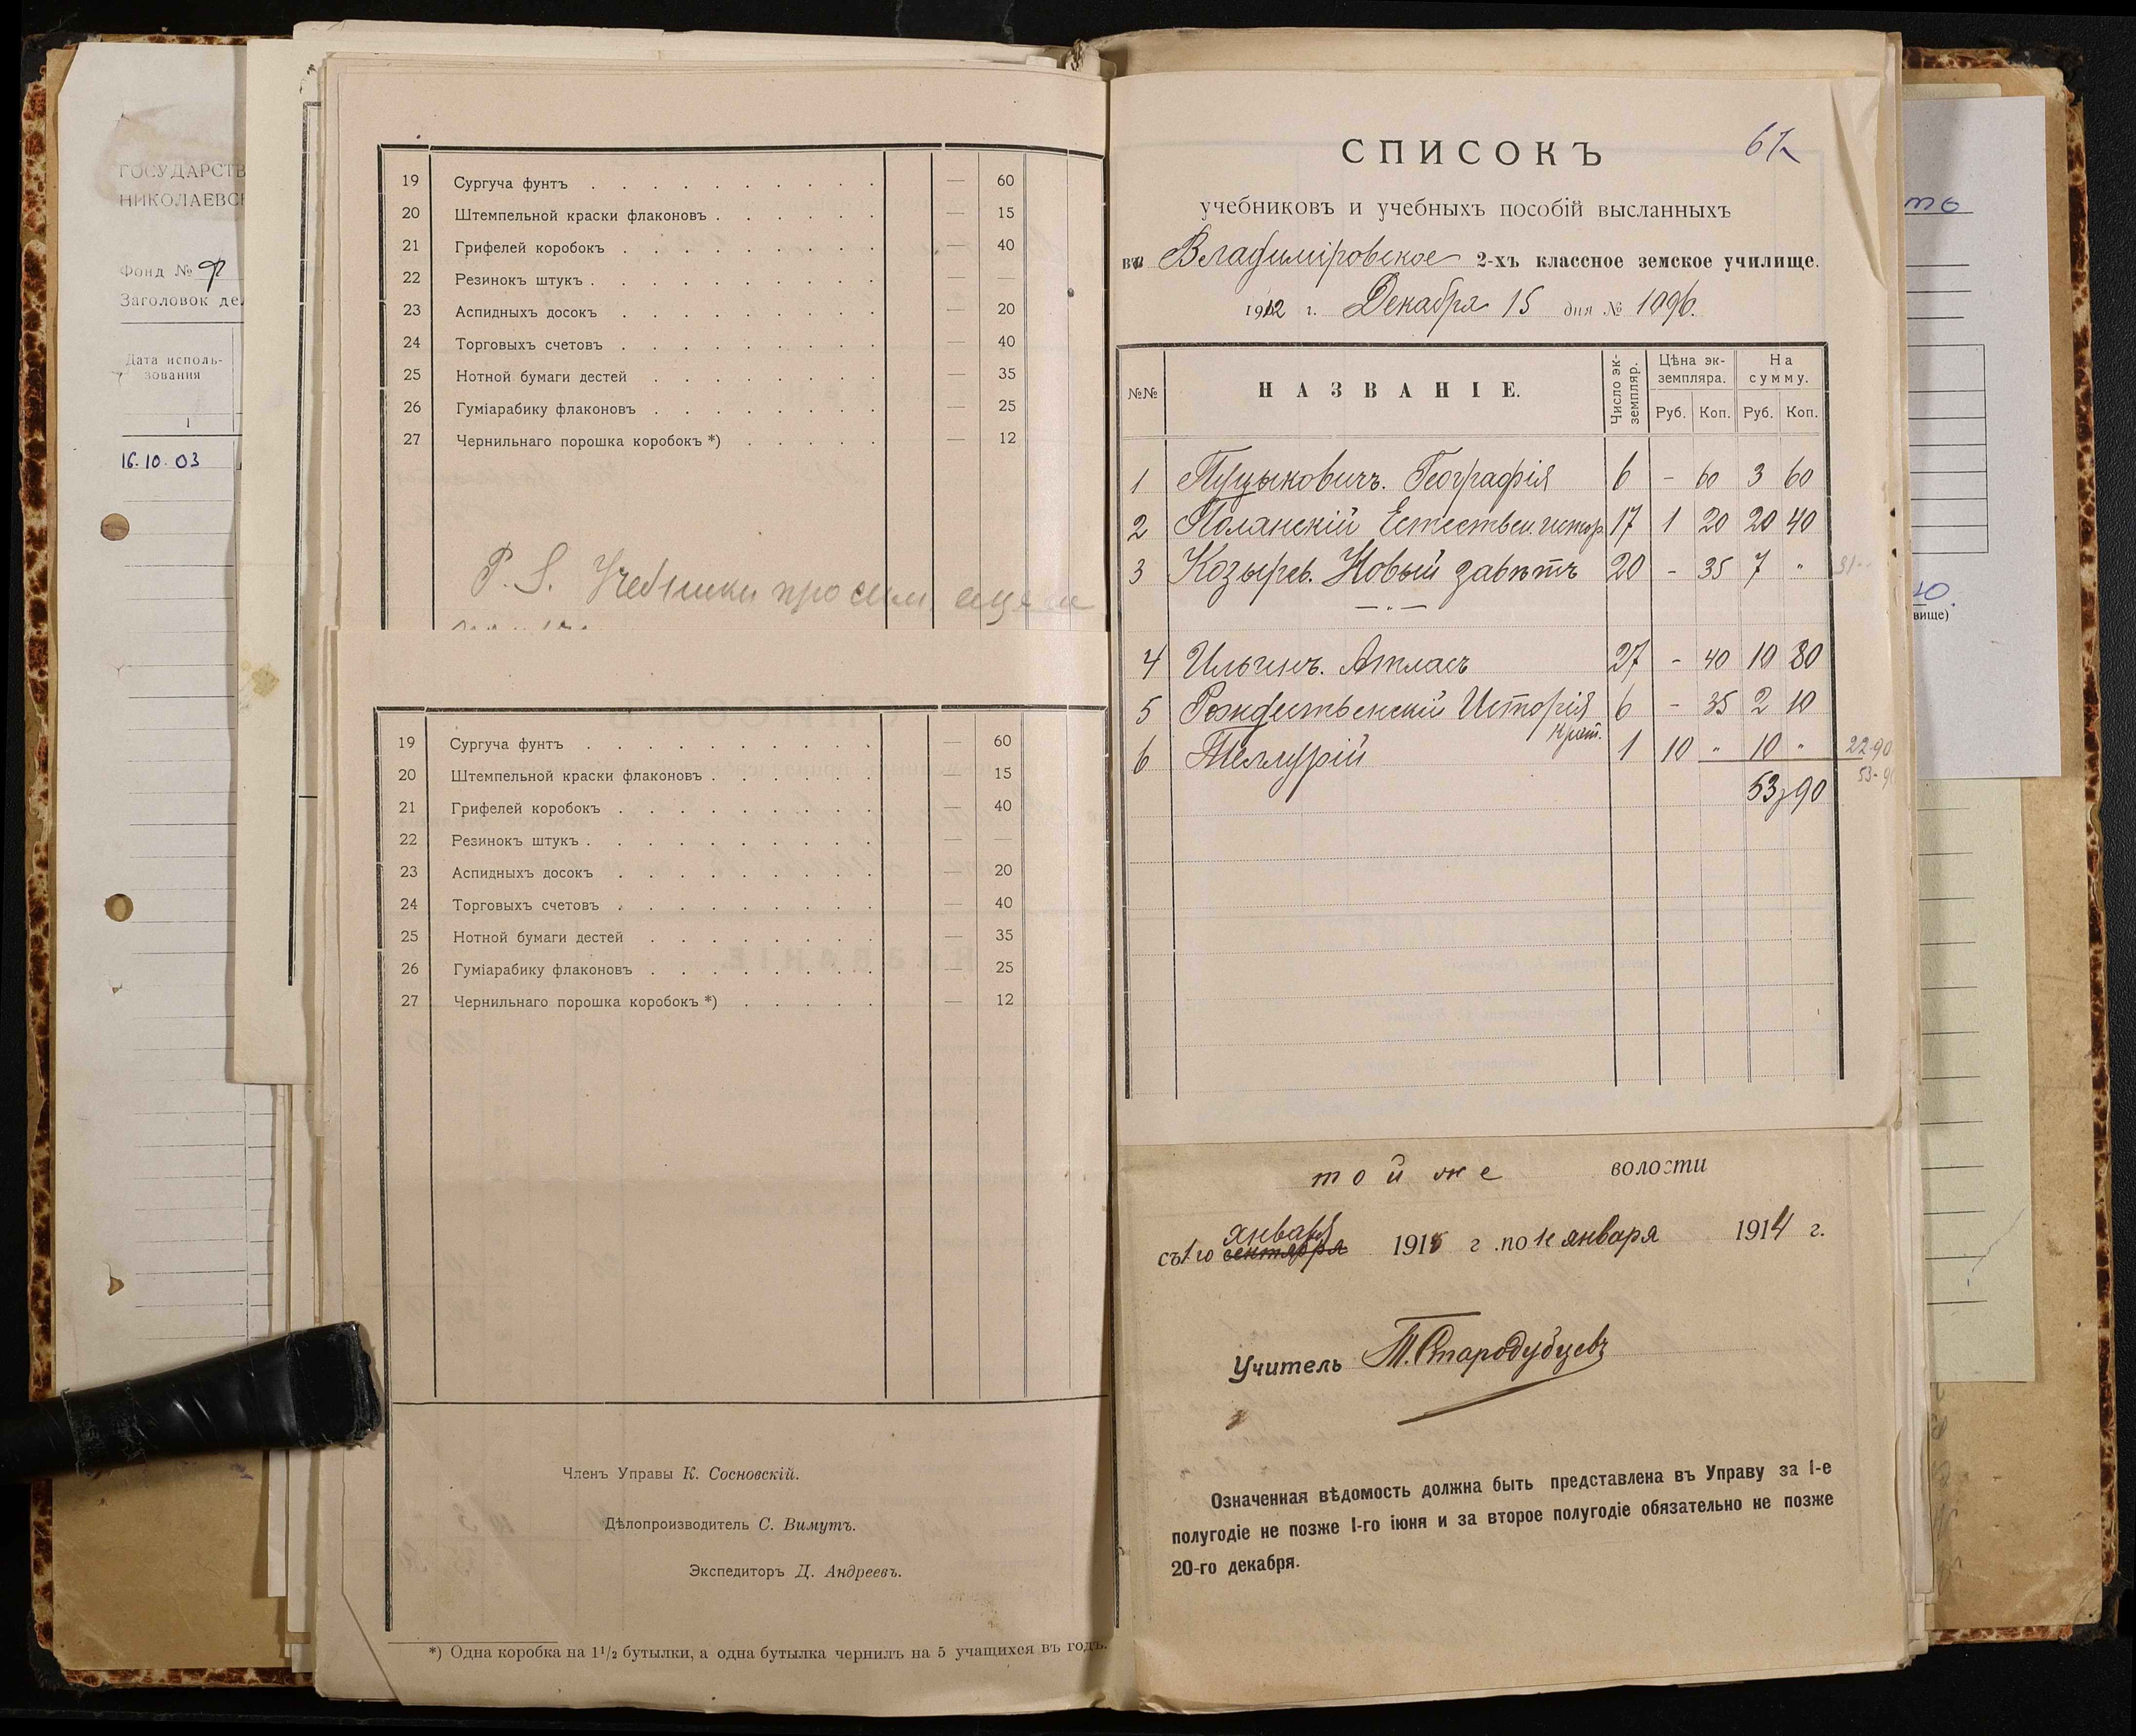 ГОСУДАРСТВ
НИКОЛАЕВС
Фонд №
Заголовок де
Дата исполь-
зования
1
16.10.03
19 Сургуча фунтъ . . . . . . . . . . — 60
20 Штемпельной краски флаконовъ . . . . . . — 15
21 Грифелей коробокъ . . . . . . . . . — 40
22 Резинокъ штукъ . . . . . . . . . . — —
23 Аспидныхъ досокъ . . . . . . . . . — 20
24 Торговыхъ счетовъ . . . . . . . . . — 40
25 Нотной бумаги дестей . . . . . . . . — 35
26 Гуміарабику флаконовъ . . . . . . . . — 25
27 Чернильнаго порошка коробокъ *) . . . . . — 12
P. S. Учебники просим еще
19 Сургуча фунтъ . . . . . . . . . . — 60
20 Штемпельной краски флаконовъ . . . . . . — 15
21 Грифелей коробокъ . . . . . . . . . — 40
22 Резинокъ штукъ . . . . . . . . . . — —
23 Аспидныхъ досокъ . . . . . . . . . — 20
24 Торговыхъ счетовъ . . . . . . . . . — 40
25 Нотной бумаги дестей . . . . . . . . — 35
26 Гуміарабику флаконовъ . . . . . . . . — 25
27 Чернильнаго порошка коробокъ *) . . . . . — 12
Членъ Управы К. Сосновскій.
Дѣлопроизводитель С. Вимутъ.
Экспедиторъ Д. Андреевъ.
*) Одна коробка на 1 1/2 бутылки, а одна бутылка чернилъ на 5 учащихся въ годъ.
СПИСОКЪ
учебниковъ и учебныхъ пособій высланныхъ
въ Владиміровское 2-хъ классное земское училище.
1912 г. Декабря 15 дня № 1096.
№№ НАЗВАНІЕ. Число эк-земпляр. Цѣна эк-земпляра. На сумму.
Руб. Коп. Руб. Коп.
1 Пуцыковичъ. Географія 6 - 60 3 60
2 Полянскій Естествен. истор. 17 1 20 20 40
3 Козырев. Новый завѣтъ 20 - 35 7 "
31--
4 Ильинъ. Атласъ 27 - 40 10 80
5 Рождественскій Исторія 6 - 35 2 10
Крат.
6 Теллурій 1 10 " 10 "
22-90
53-9
53,90
той же волости
января
съ 1 го сентября 1913 г. по 1е января 1914 г.
Учитель Т. Стародубцевъ
Означенная вѣдомость должна быть представлена въ Управу за I-е
полугодіе не позже I-го іюня и за второе полугодіе обязательно не позже
20-го декабря.
то
ю.
вище)